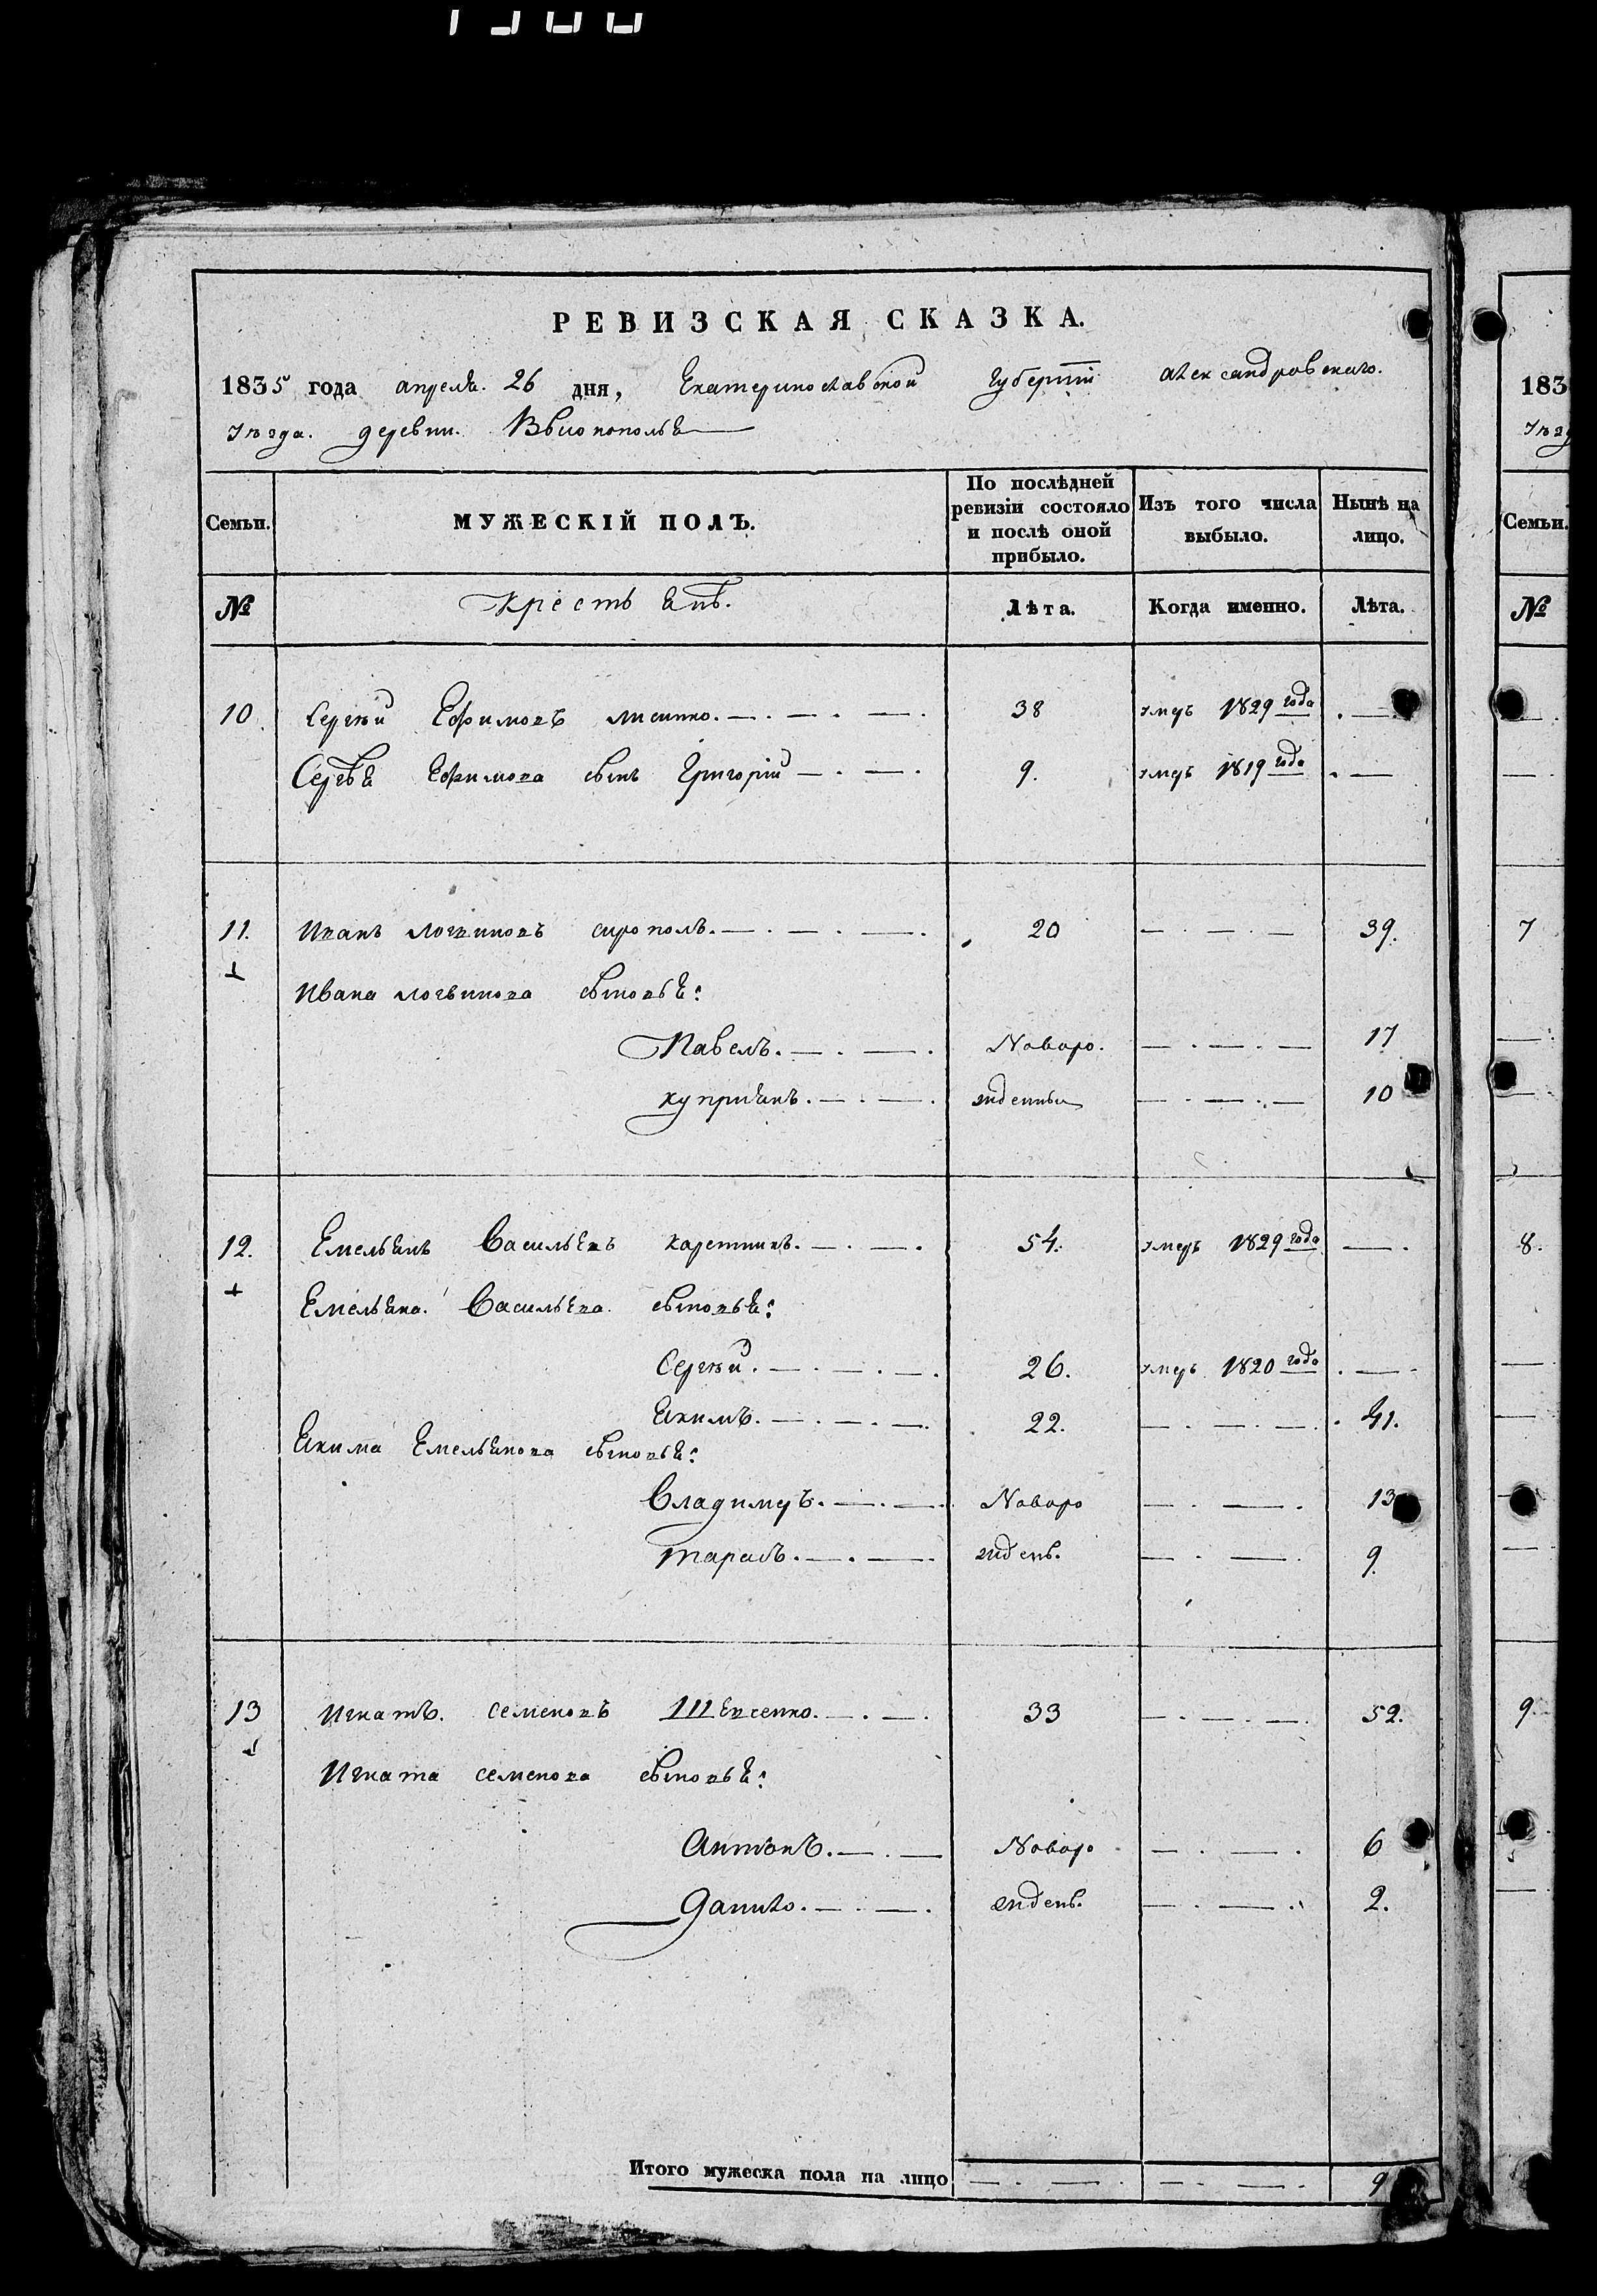 РЕВИЗСКАЯ СКАЗКА.
1835 года апреля. 26 дня, Екатеринославской Губернiи александровскаго.
уѣзда. деревни.
Семьи. МУЖЕСКIЙ ПОЛЪ. По послѣдней ревизiи состояло и послѣ оной прибыло. Изъ того числа выбыло. Нынѣ на лицо.
№ Крестьянъ. Лѣта. Когда именно. Лѣта.
10 Сергѣй Ефимовъ лисенко. 38 умеръ 1829 года
Сергѣя Ефимова сынъ Григорiй 9. умеръ 1819 года
11. Иванъ логвиновъ сирополъ. 20 39.
Ивана логвинова сыновья:
Павелъ. Новоро. 17
куприянъ. жденныи 10
12. Емельянъ Васильевъ каретникъ. 54. умеръ 1829 года
Емельяна. Васильева. сыновья:
Сергѣй. 26. умеръ 1820 года
Якимъ. 22. 41.
Якима Емельянова сыновья:
Владимеръ. Новоро 13
тарасъ. жденъ. 9.
13 Игнатъ. семеновъ Шевченко. 33 52.
Игната семенова сыновья:
Антонъ. Новоро 6
данило. жденъ. 2.
Итого мужеска пола на лицо 9
183
уѣзд
Семьи.
№
7
8.
9.